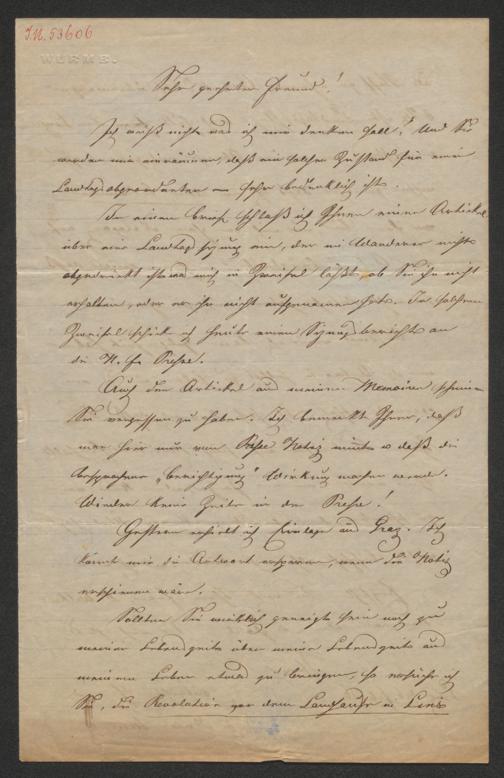 J.N. 53606
Sehr geehrter Freund!
Ich weiß nicht was ich mir denken soll! Und Sie
werden mir einräumen, daß ein solcher Zustand für einen
Landtagsabgeordneten sehr bedenklich ist.
In einen Brief schloß ich Ihnen einen Artickel
über eine Landtagssitzung ein, der im Wanderer nicht
abgedruckt ist was mich in Zweifel läßt, ob Sie ihn nicht
erhalten, oder er ihn nicht aufgenommen hat. In solchem
Zweifel schicke ich heute einen Sitzungsbericht an
die N. fr. Presse.
Auch den Artickel aus meinen Memoiren scheinen
Sie vergessen zu haben. Ich bemerkte Ihnen, daß
man hier nur von Presse Notiz nimmt so daß die
besprochene „berichtigung" Wirkung machen werde.
Wieder keine Zeile in der Presse!
Gestern erhielt ich Einlage aus Graz. Ich
könnte mir die Antwort ersparen, wenn die Notiz
erschienen wäre.
Sollten Sie wirklich geneigt sein noch zu
meiner Lebenszeit über meine Lebenszeit und
meinem Leben etwas zu bringen, so ersuche ich
Sie, die Revolution vor dem Landhause in Linz